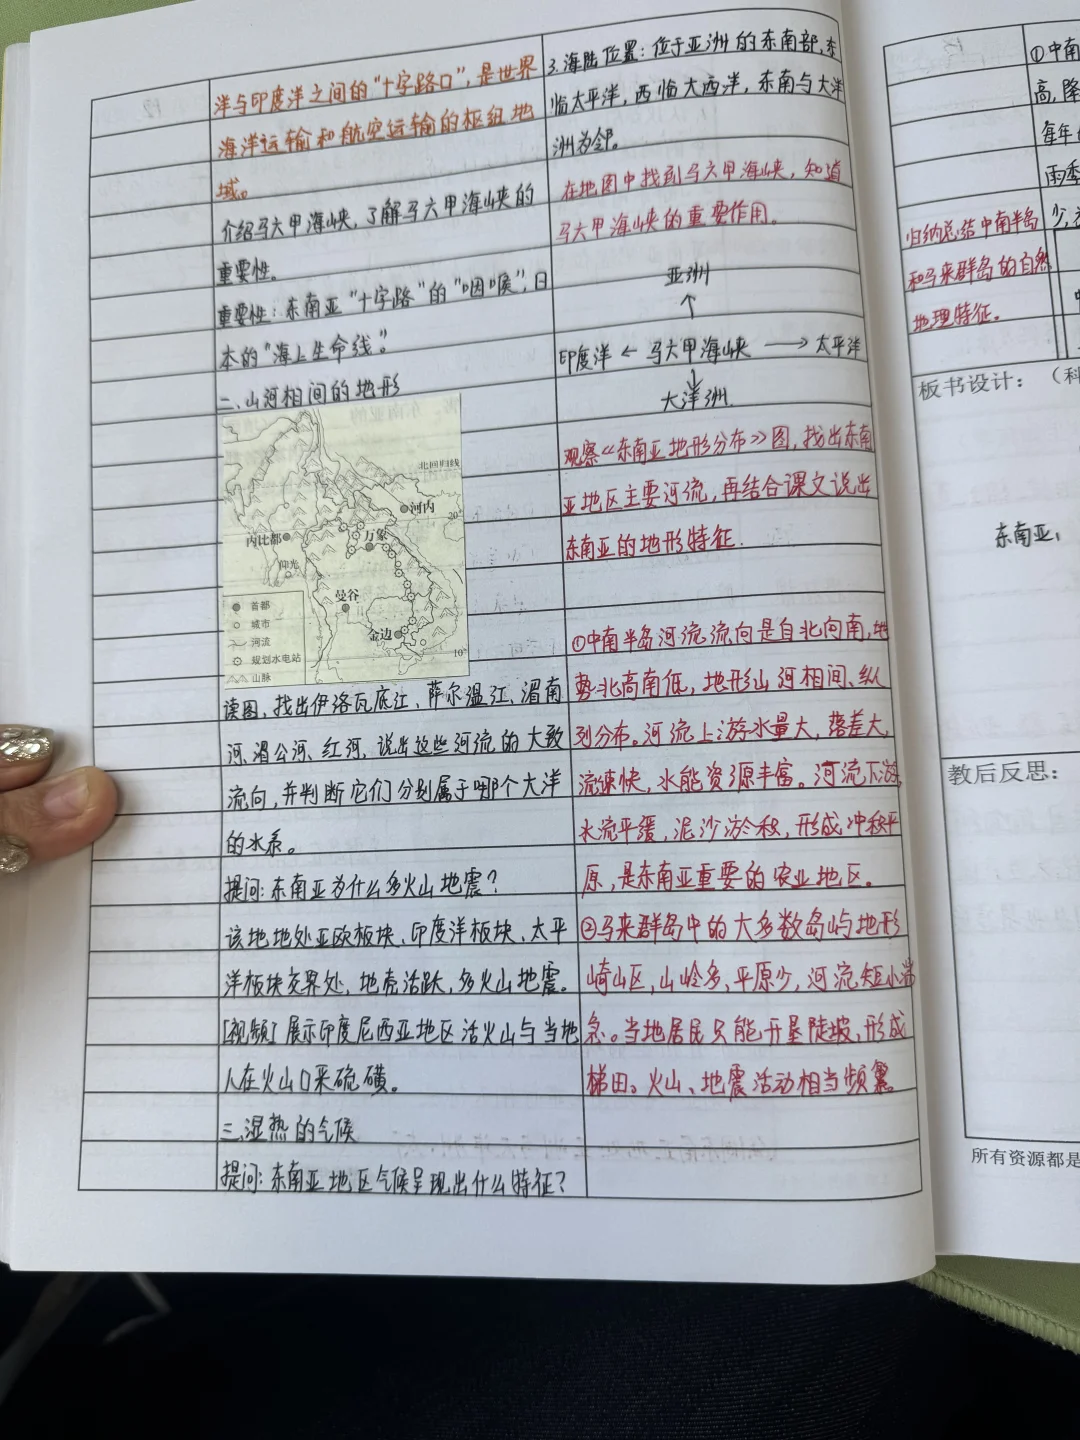 洋与印度洋之间的“十字路口”，是世界
海洋运输和航空运输的枢纽地
域。
介绍马六甲海峡，了解马六甲海峡的
重要性。
重要性：东南亚“十字路”的“咽喉”，日
本的“海上生命线”。
二、山河相间的地形
北回归线
河内
20°
内比都
万象
仰光
曼谷
金边
10°
首都
城市
河流
规划水电站
山脉
读图，找出伊洛瓦底江、萨尔温江、湄南
河、湄公河、红河，说出这些河流的大致
流向，并判断它们分别属于哪个大洋
的水系。
提问：东南亚为什么多火山地震？
该地地处亚欧板块、印度洋板块、太平
洋板块交界处，地壳活跃，多火山地震。
[视频]展示印度尼西亚地区活火山与当地
人在火山口采硫磺。
三、湿热的气候
提问：东南亚地区气候呈现出什么特征？
3.海陆位置：位于亚洲的东南部，东
临太平洋，西临大西洋，东南与大洋
洲为邻。
在地图中找到马六甲海峡，知道
马六甲海峡的重要作用。
亚洲
↑
印度洋 ← 马六甲海峡 → 太平洋
↓
大洋洲
观察《东南亚地形分布》图，找出东南
亚地区主要河流，再结合课文说出
东南亚的地形特征.
①中南半岛河流流向是自北向南，地
势北高南低，地形山河相间、纵
列分布。河流上游水量大，落差大，
流速快，水能资源丰富。河流下游
水流平缓，泥沙淤积，形成冲积平
原，是东南亚重要的农业地区。
②马来群岛中的大多数岛屿地形
崎山区，山岭多，平原少，河流短小湍
急。当地居民只能开垦陡坡，形成
梯田。火山、地震活动相当频繁。
归纳总结中南半岛
和马来群岛的自然
地理特征。
①中南
高，降
每年
雨季
少，
板书设计：（科
东南亚，
教后反思：
所有资源都是